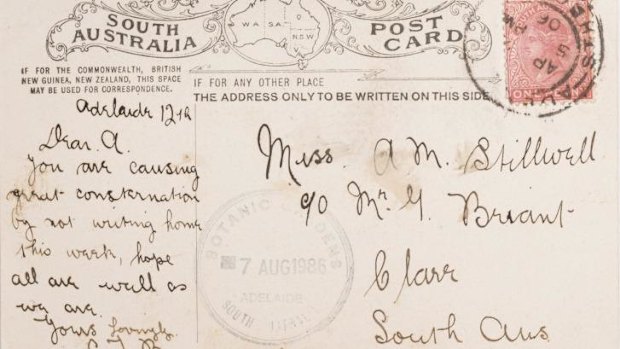 SOUTH AUSTRALIA
W.A.
S.A.
Q.
NSW
V.
POST CARD
IF FOR THE COMMONWEALTH, BRITISH
NEW GUINEA, NEW ZEALAND, THIS SPACE
MAY BE USED FOR CORRESPONDENCE.
IF FOR ANY OTHER PLACE
THE ADDRESS ONLY TO BE WRITTEN ON THIS SIDE
Adelaide 12th
Dear A.
you are causing
great consternation
by not writing home
this week, hope
all are well as
we are.
Yours lovingly
Miss. A M. Stillwell
c/o Mr. G. Briant
Clare
South Aus
BOTANIC GARDENS
7 AUG 1986
ADELAIDE
SOUTH
AP
5
06